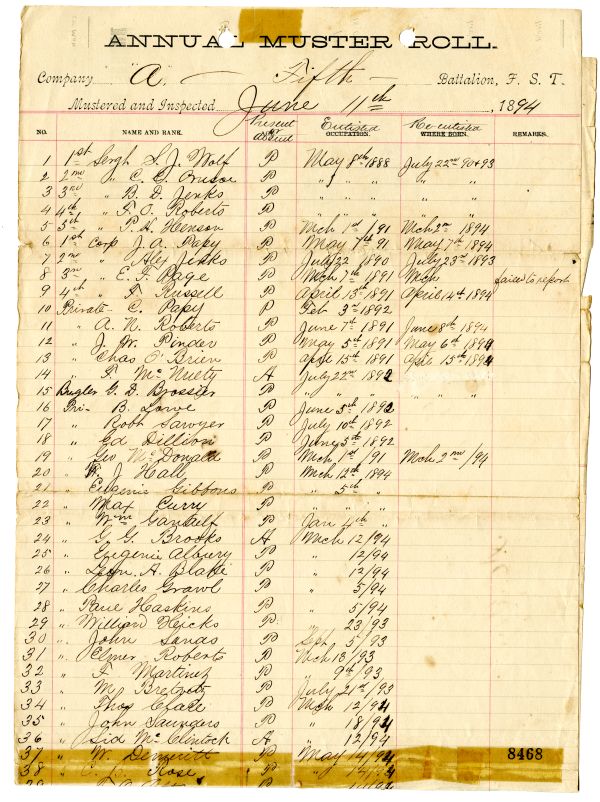 ANNUAL MUSTER ROLL.
Company "A" — Fifth — Battalion, F. S. T.
Mustered and Inspected June 11th, 1894
NO. NAME AND RANK. Present Absent Enlisted OCCUPATION. Re-enlisted WHERE BORN. REMARKS.
1 1st Sergt S. J. Wolf P May 8th 1888 July 22nd 90+93
2 2nd " C. G. P " " "
3 3rd " B. D. Jenks P " " " "
4 4th " F. O. Roberts P " " " "
5 5th " P. H. Henson P Mch 1st /91 Mch 2n 1894
6 1st Corp J. A. Papy P May 7th 91 May 7th 1894
7 2nd " Alex Jenks P July 22 1890 July 23rd 1893
8 3rd " E. F. Page P Mch 7th 1891 Mch failed to report
9 4th " F. Russell P April 13th 1891 April 14th 1894
10 Private C. Papy P Feb 3rd 1892
11 " A. N. Roberts P June 7th 1891 June 8th 1894
12 " J. W. Pinder P May 5th 1891 May 6th 1894
13 " Chas O'Brien P April 15th 1891 April 15th 1894
14 " F. McNiety A July 22nd 1892
15 Bugler G. D. Brossier P " " " " " "
16 Pri- B. Lowe P June 5th 1892
17 " Robt Sawyer P July 10th 1892
18 " Ed Dillion P June 5th 1892
19 " Geo McDonald P Mch 1st /91 Mch 2nd /94
20 " W. J. Hall P Mch 12th 1894
21 " Eugenio Gibbons P " 5th "
22 " Max Curry P " " "
23 " Wm Gandolf P Jan 4th "
24 " G. G. Brooks A Mch 12/94
25 " Eugenie Albury P " 12/94
26 " Leon. A. Blake P " 12/94
27 " Charles Grawl P " 5/94
28 " Paul Haskins P " 5/94
29 " William Hicks P " 23/93
30 " John Sands P Sept 5/93
31 " Elmer Roberts P Mch 18/93
32 " F. Martinez P " 9th/93
33 " M. P July 21st/93
34 " Thos P Mch 12/94
35 " John Saunders P " 18/94
36 " Sid McClintock A " 12/94
37 " W. P May 14/94 8468
38 " Rose P " 14/94